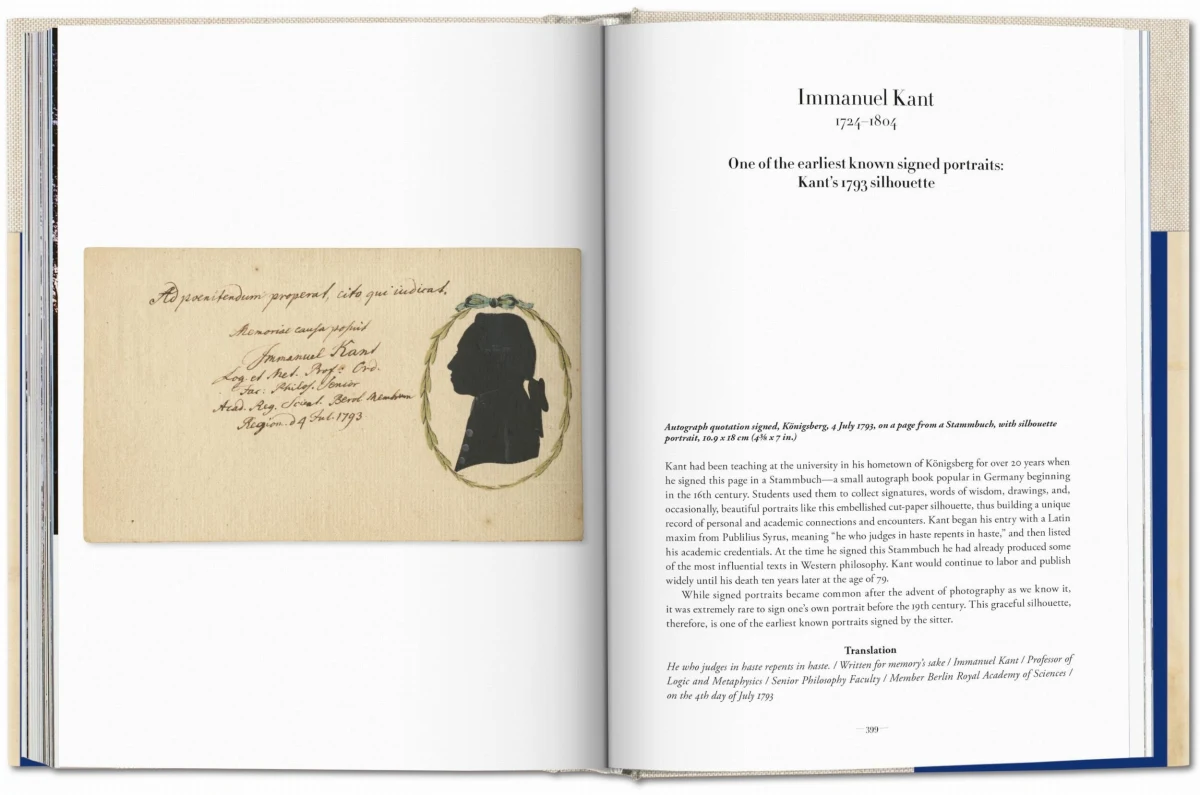 Ad poenitendum properat, cito qui iudicat.
Memoriae causa posuit
Immanuel Kant
Log. et Met. Prof: Ord.
Fac. Philos. Senior
Acad. Reg. Scient. Berol Membrum
Region. d 4 Jul. 1793
Immanuel Kant
1724–1804
One of the earliest known signed portraits:
Kant's 1793 silhouette
Autograph quotation signed, Königsberg, 4 July 1793, on a page from a Stammbuch, with silhouette
portrait, 10.9 x 18 cm (4⅜ x 7 in.)
Kant had been teaching at the university in his hometown of Königsberg for over 20 years when
he signed this page in a Stammbuch—a small autograph book popular in Germany beginning
in the 16th century. Students used them to collect signatures, words of wisdom, drawings, and,
occasionally, beautiful portraits like this embellished cut-paper silhouette, thus building a unique
record of personal and academic connections and encounters. Kant began his entry with a Latin
maxim from Publilius Syrus, meaning "he who judges in haste repents in haste," and then listed
his academic credentials. At the time he signed this Stammbuch he had already produced some
of the most influential texts in Western philosophy. Kant would continue to labor and publish
widely until his death ten years later at the age of 79.
While signed portraits became common after the advent of photography as we know it,
it was extremely rare to sign one's own portrait before the 19th century. This graceful silhouette,
therefore, is one of the earliest known portraits signed by the sitter.
Translation
He who judges in haste repents in haste. / Written for memory's sake / Immanuel Kant / Professor of
Logic and Metaphysics / Senior Philosophy Faculty / Member Berlin Royal Academy of Sciences /
on the 4th day of July 1793
399